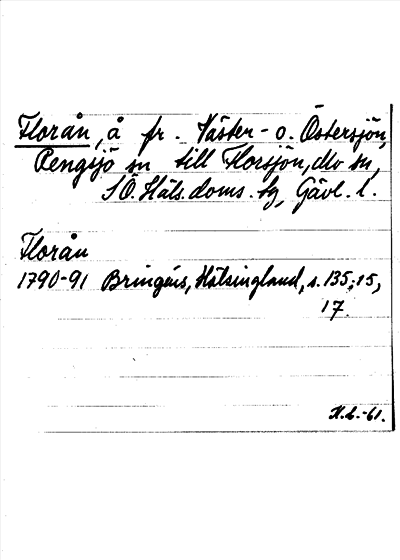 Florån, å fr. Väster- o. Östersjön,
Rengsjö sn till Florsjön, Mo sn,
SÖ. Häls. doms. tg, Gävl. l.
Florån
1790-91 Bringéus, Hälsingland, s. 135; 15,
17.
H.L.-61.